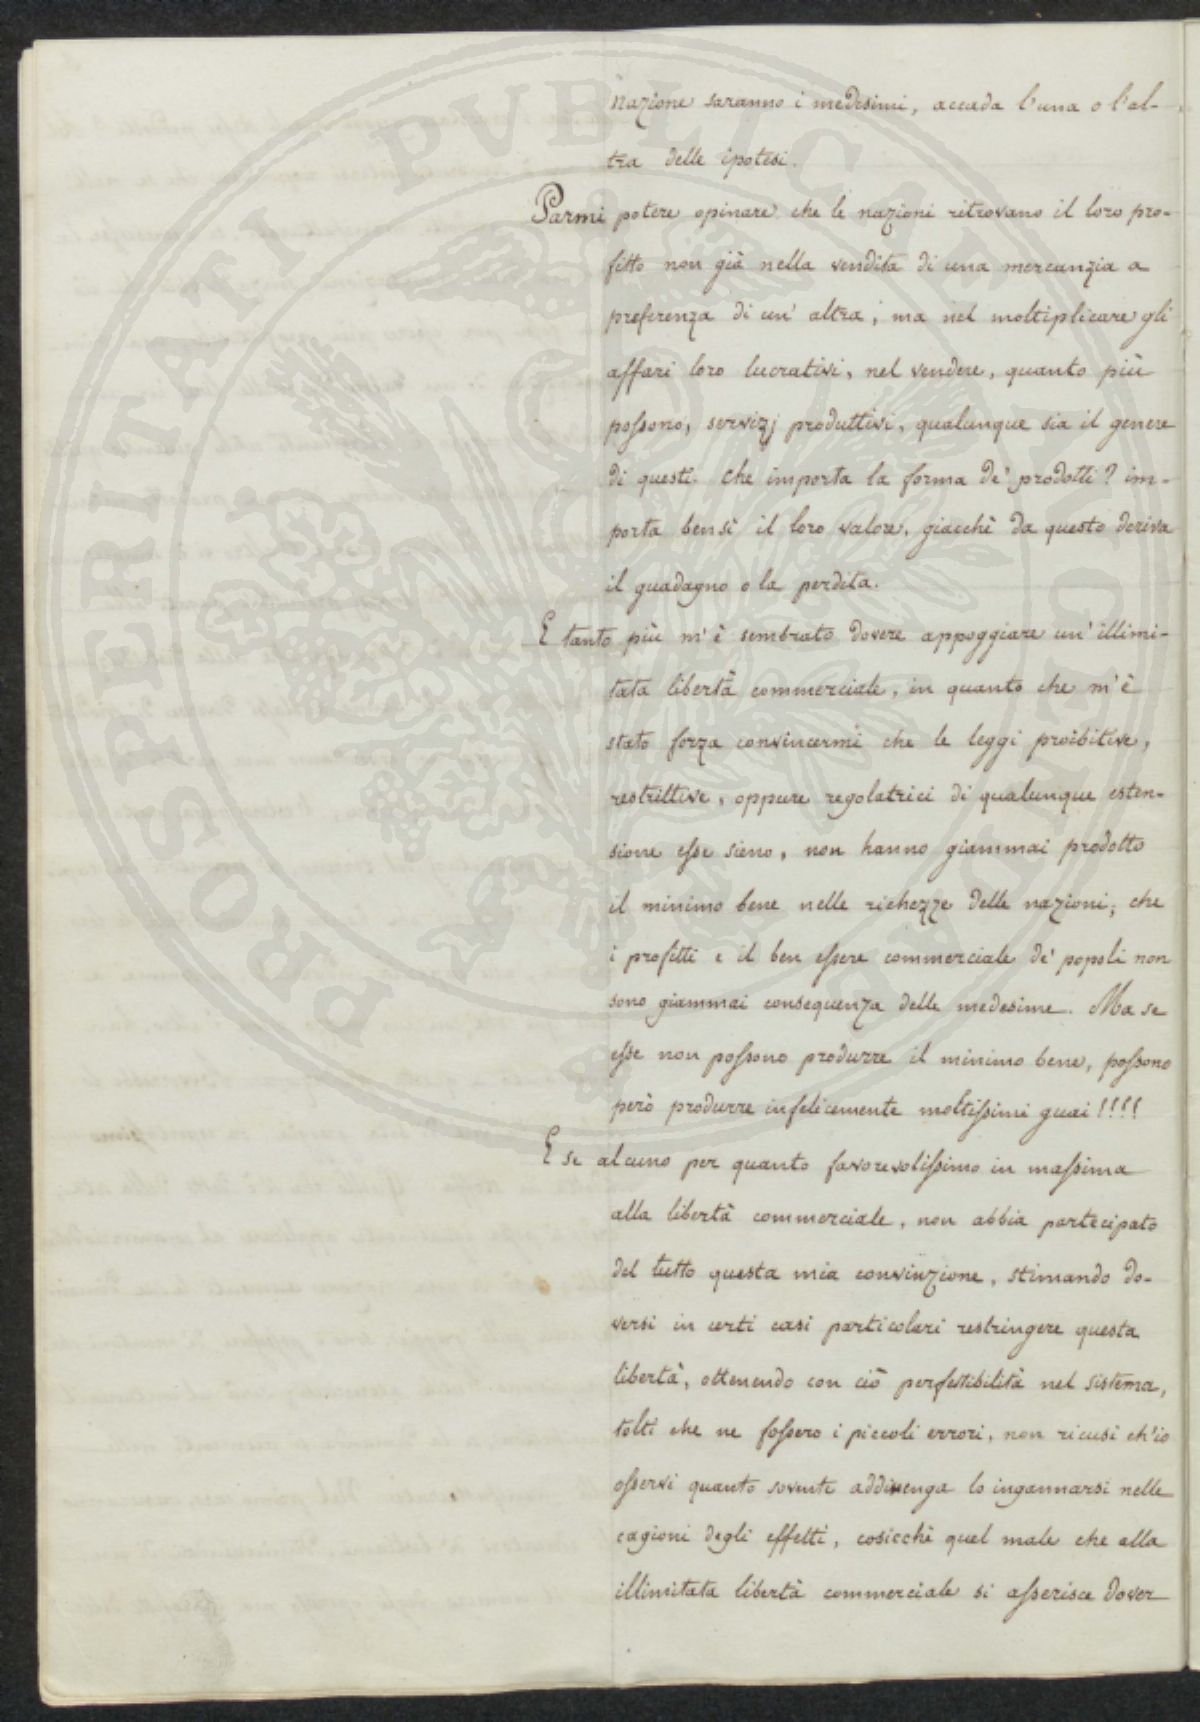 nazione saranno i medesimi, accada l'una o l'al-
tra delle ipotesi.
Parmi potere opinare che le nazioni ritrovano il loro pro-
fitto non già nella vendita di una mercanzia a
preferenza di un' altra, ma nel moltiplicare gli
affari loro lucrativi, nel vendere, quanto più
possono, servizj produttivi, qualunque sia il genere
di questi. Che importa la forma de' prodotti? im-
porta bensì il loro valore, giacchè da questo deriva
il guadagno o la perdita.
E tanto più m' è sembrato dovere appoggiare un' illimi-
tata libertà commerciale, in quanto che m' è
stato forza convincermi che le leggi proibitive,
restrittive, oppure regolatrici di qualunque esten-
sione esse sieno, non hanno giammai prodotto
il minimo bene nelle richezze delle nazioni; che
i profitti e il ben essere commerciale de' popoli non
sono giammai consequenza delle medesime. Ma se
esse non possono produrre il minimo bene, possono
però produrre infelicemente moltissimi guai!!!!
E se alcuno per quanto favorevolissimo in massima
alla libertà commerciale, non abbia partecipato
del tutto questa mia convinzione, stimando do-
versi in certi casi particolari restringere questa
libertà, ottenendo con ciò perfettibilità nel sistema,
tolti che ne fossero i piccoli errori, non ricusi ch'io
osservi quanto sovente addivenga lo ingannarsi nelle
cagioni degli effetti, cosicchè quel male che alla
illimitata libertà commerciale si asserisce dover
PROSPERITATI PVBLICAE AVGENDAE